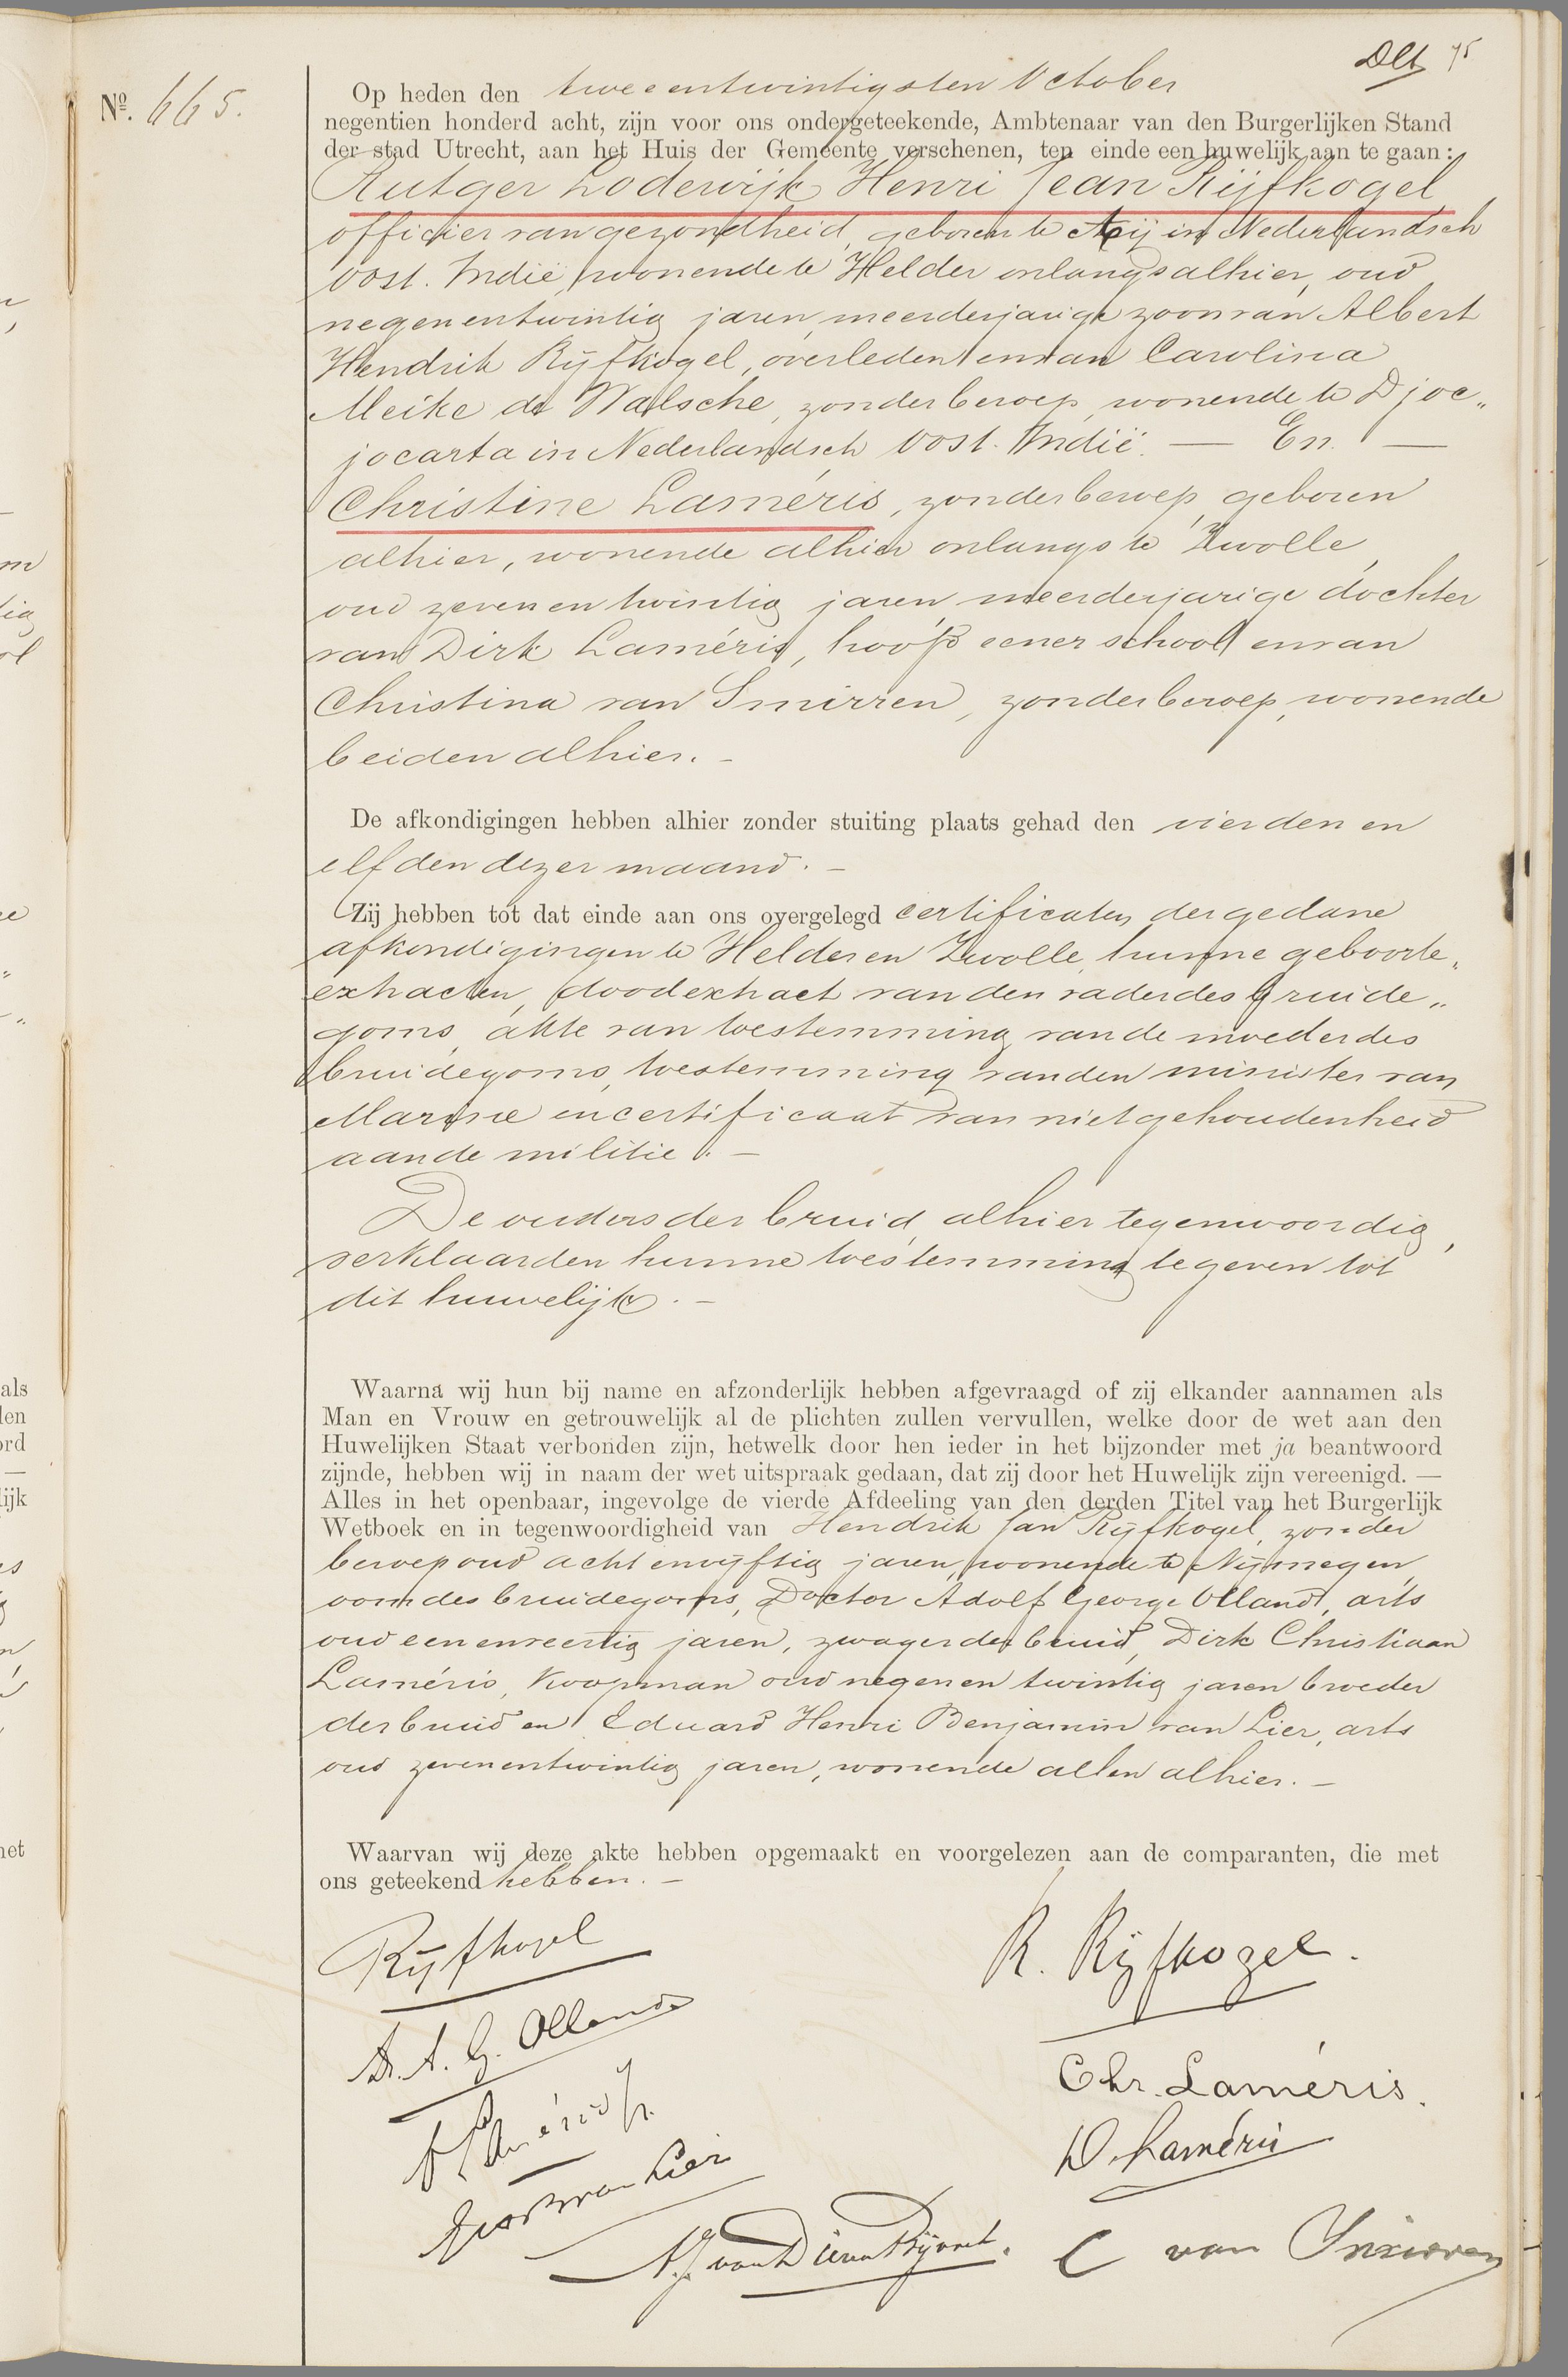 Dlt 75
Nº. 665.
Op heden den tweeentwintigsten October
negentien honderd acht, zijn voor ons ondergeteekende, Ambtenaar van den Burgerlijken Stand
der stad Utrecht, aan het Huis der Gemeente verschenen, ten einde een huwelijk aan te gaan:
Rutger Lodewijk Henri Jean Rijfkogel
officier van gezondheid, geboren te in Nederlandsch
Oost. Indië, wonende te Helder onlangs alhier, oud
negenentwintig jaren, meerderjarige zoon van Albert
Hendrik Rijfkogel, overleden en van Carolina
Meike de Walsche, zonder beroep, wonende te Djoc„
jocarta in Nederlandsch Oost. Indië. — En. —
Christine Laméris, zonder beroep, geboren
alhier, wonende alhier onlangs te Zwolle,
oud zevenentwintig jaren, meerderjarige dochter
van Dirk Laméris, hoofd eener school en van
Christina van Smirren, zonder beroep, wonende
beiden alhier. –
De afkondigingen hebben alhier zonder stuiting plaats gehad den vierden en
elfden dezer maand. –
Zij hebben tot dat einde aan ons overgelegd certificaten der gedane
afkondigingen te Helder en Zwolle, hunne geboorte„
extracten, doodextract van den vader des bruide„
goms, akte van toestemming van de moeder des
bruidegoms, toestemming van den minister van
Marine en certificaat van niet gehoudenheid
aan de militie. –
De ouders der bruid, alhier tegenwoordig,
verklaarden hunne toestemming te geven tot
dit huwelijk. –
Waarna wij hun bij name en afzonderlijk hebben afgevraagd of zij elkander aannamen als
Man en Vrouw en getrouwelijk al de plichten zullen vervullen, welke door de wet aan den
Huwelijken Staat verbonden zijn, hetwelk door hen ieder in het bijzonder met ja beantwoord
zijnde, hebben wij in naam der wet uitspraak gedaan, dat zij door het Huwelijk zijn vereenigd. —
Alles in het openbaar, ingevolge de vierde Afdeeling van den derden Titel van het Burgerlijk
Wetboek en in tegenwoordigheid van Hendrik Jan Rijfkogel, zonder
beroep oud achtenvijftig jaren, wonende te Nijmegen,
oom des bruidegoms, Doctor Adolf George Olland, arts
oud eenenveertig jaren, zwager der bruid, Dirk Christiaan
Laméris, Koopman oud negenentwintig jaren broeder
der bruid en Eduard Henri Benjamin van Lier, arts
oud zevenentwintig jaren, wonende allen alhier. –
Waarvan wij deze akte hebben opgemaakt en voorgelezen aan de comparanten, die met
ons geteekend hebben. –
Rijfkogel
R. Rijfkogel.
Dr. A. G. Olland
Chr. Laméris.
D. Laméris
van Lier
C van Smirren